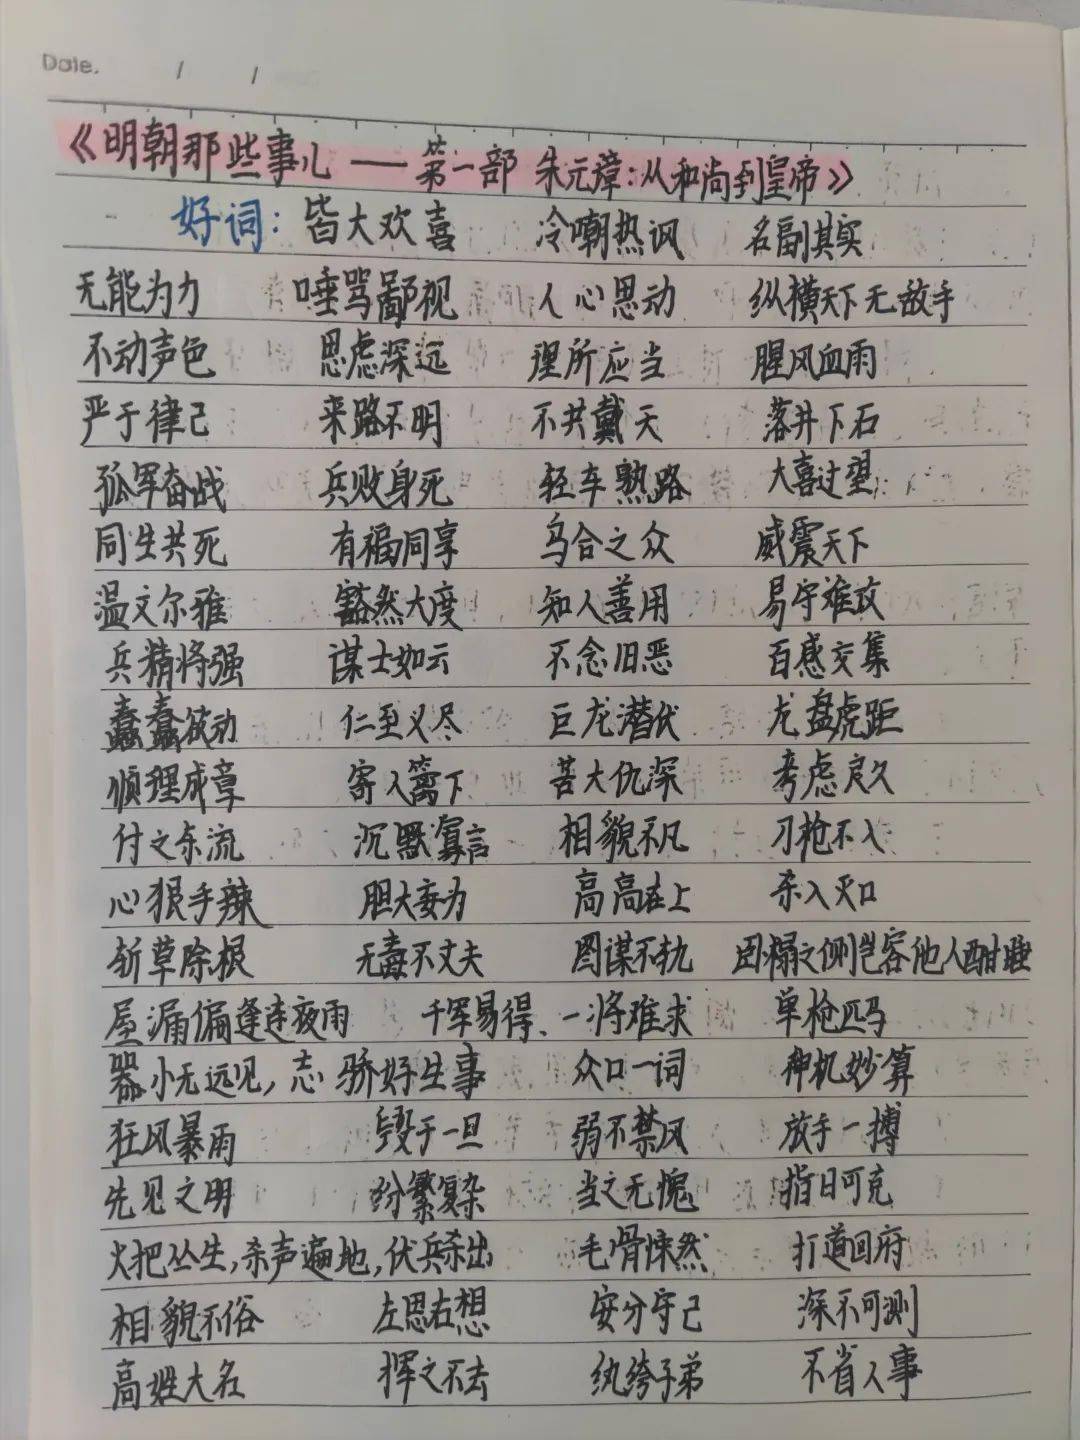 Date. / /
《明朝那些事儿——第一部 朱元璋:从和尚到皇帝》
好词: 皆大欢喜 冷嘲热讽 名副其实
无能为力 唾骂鄙视 人心思动 纵横天下无敌手
不动声色 思虑深远 理所应当 腥风血雨
严于律己 来路不明 不共戴天 落井下石
孤军奋战 兵败身死 轻车熟路 大喜过望
同生共死 有福同享 乌合之众 威震天下
温文尔雅 豁然大度 知人善用 易守难攻
兵精将强 谋士如云 不念旧恶 百感交集
蠢蠢欲动 仁至义尽 巨龙潜伏 龙盘虎距
顺理成章 寄人篱下 苦大仇深 考虑良久
付之东流 沉默寡言 相貌不凡 刀枪不入
心狠手辣 胆大妄为 高高在上 杀人灭口
斩草除根 无毒不丈夫 图谋不轨 卧榻之侧岂容他人酣睡
屋漏偏逢连夜雨 千军易得、一将难求 单枪匹马
器小无远见,志骄好生事 众口一词 神机妙算
狂风暴雨 毁于一旦 弱不禁风 放手一搏
先见之明 纷繁复杂 当之无愧 指日可克
火把丛生,杀声遍地,伏兵杀出 毛骨悚然 打道回府
相貌不俗 左思右想 安分守己 深不可测
高姓大名 挥之不去 纨绔子弟 不省人事